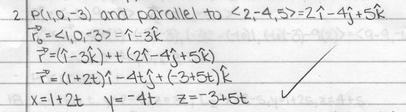 2. P(1,0,-3) and parallel to <2,-4,5>=2î-4ĵ+5k̂
r⃗₀=<1,0,-3>=î-3k̂
r⃗=(î-3k̂)+t(2î-4ĵ+5k̂)
r⃗=(1+2t)î-4tĵ+(-3+5t)k̂
x=1+2t y=-4t z=-3+5t